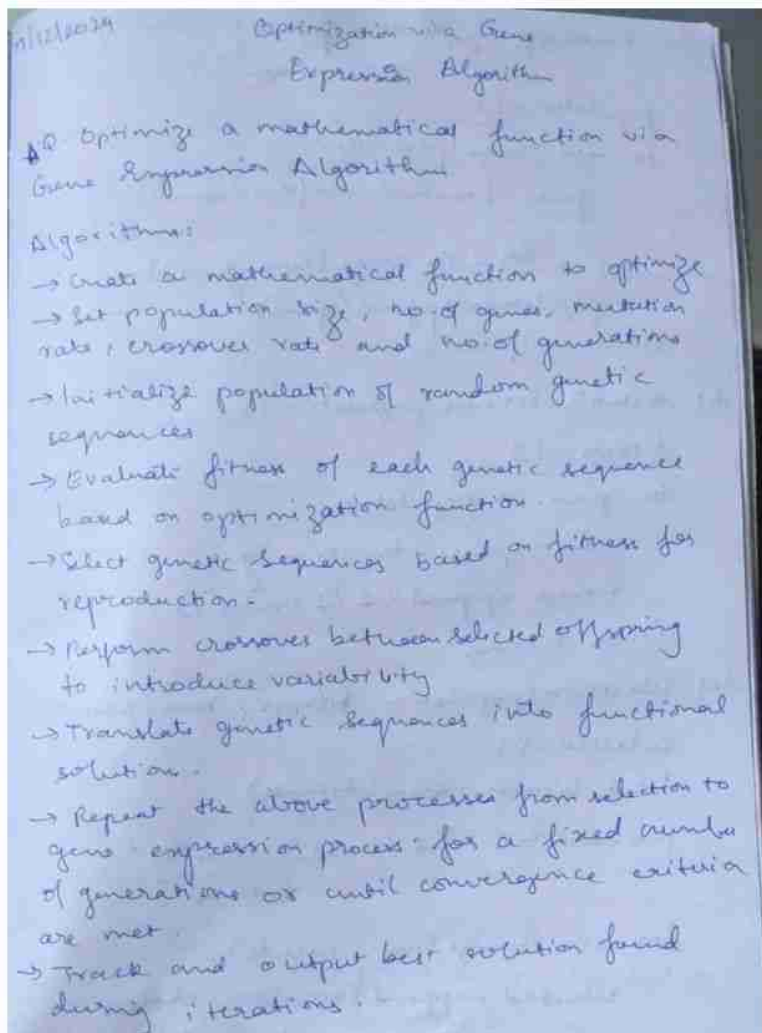 /12/2024
Optimization via Gene
Expression Algorithm
Q Optimize a mathematical function via
Gene Expression Algorithm
Algorithm:
→ Create a mathematical function to optimize
→ Set population size, no. of genes, mutation
rate, crossover rate and no. of generations
→ Initialize population of random genetic
sequences
→ Evaluate fitness of each genetic sequence
based on optimization function.
→ Select genetic sequences based on fitness for
reproduction.
→ Perform crossover between selected offspring
to introduce variability
→ Translate genetic sequences into functional
solution.
→ Repeat the above processes from selection to
gene expression process for a fixed number
of generations or until convergence criteria
are met.
→ Track and output best solution found
during iterations.